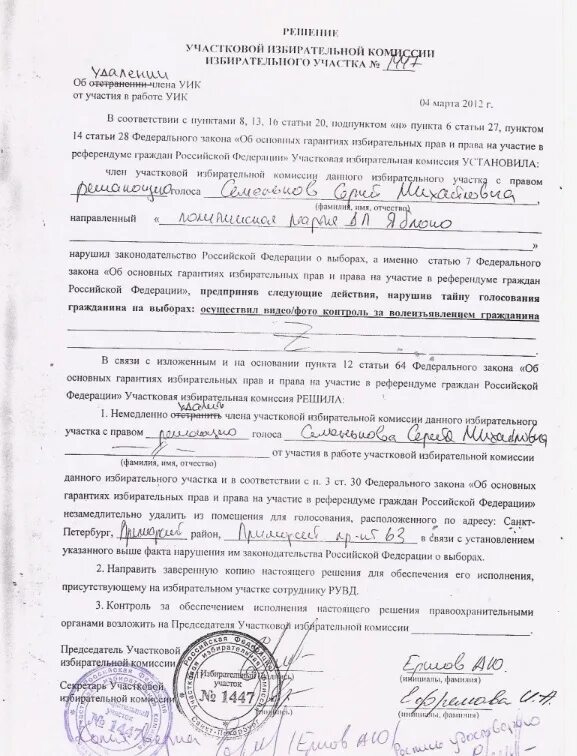 РЕШЕНИЕ
УЧАСТКОВОЙ ИЗБИРАТЕЛЬНОЙ КОМИССИИ
ИЗБИРАТЕЛЬНОГО УЧАСТКА № 1447
удалении
Об отстранении члена УИК
от участия в работе УИК
04 марта 2012 г.
В соответствии с пунктами 8, 13, 16 статьи 20, подпунктом «н» пункта 6 статьи 27, пунктом
14 статьи 28 Федерального закона «Об основных гарантиях избирательных прав и права на участие в
референдуме граждан Российской Федерации» Участковая избирательная комиссия УСТАНОВИЛА:
член участковой избирательной комиссии данного избирательного участка с правом
решающего голоса Семеньков Сергей Михайлович,
(фамилия, имя, отчество)
направленный « политическая партия Яблоко
»
нарушил законодательство Российской Федерации о выборах, а именно статью 7 Федерального
закона «Об основных гарантиях избирательных прав и права на участие в референдуме граждан
Российской Федерации», предприняв следующие действия, нарушив тайну голосования
гражданина на выборах: осуществил видео/фото контроль за волеизъявлением гражданина
В связи с изложенным и на основании пункта 12 статьи 64 Федерального закона «Об
основных гарантиях избирательных прав и права на участие в референдуме граждан Российской
Федерации» Участковая избирательная комиссия РЕШИЛА:
удалить
1. Немедленно отстранить члена участковой избирательной комиссии данного избирательного
участка с правом решающего голоса Семенькова Сергея Михайловича
от участия в работе участковой избирательной комиссии
(фамилия, имя, отчество)
данного избирательного участка и в соответствии с п. 3 ст. 30 Федерального закона «Об основных
гарантиях избирательных прав и права на участие в референдуме граждан Российской Федерации»
незамедлительно удалить из помещения для голосования, расположенного по адресу: Санкт-
Петербург, Приморский район, Приморский пр-кт 63 в связи с установлением
указанного выше факта нарушения им законодательства Российской Федерации о выборах.
2. Направить заверенную копию настоящего решения для обеспечения его исполнения,
присутствующему на избирательном участке сотруднику РУВД.
3. Контроль за обеспечением исполнения настоящего решения правоохранительными
органами возложить на Председателя Участковой избирательной комиссии
Председатель Участковой
избирательной комиссии
Ершов А.Ю.
(инициалы, фамилия)
Секретарь Участковой
избирательной комиссии
Ефремова И.А.
(инициалы, фамилия)
Российская Федерация
Участковая избирательная комиссия
Избирательный
участок
№ 1447
Санкт-Петербург
№ 1447
Копия верна
Ершов А.Ю.